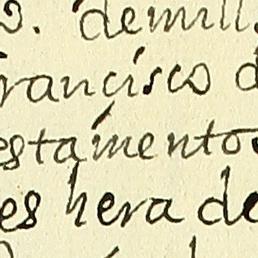 2. demill.
rancisco d
estamento
es hera de